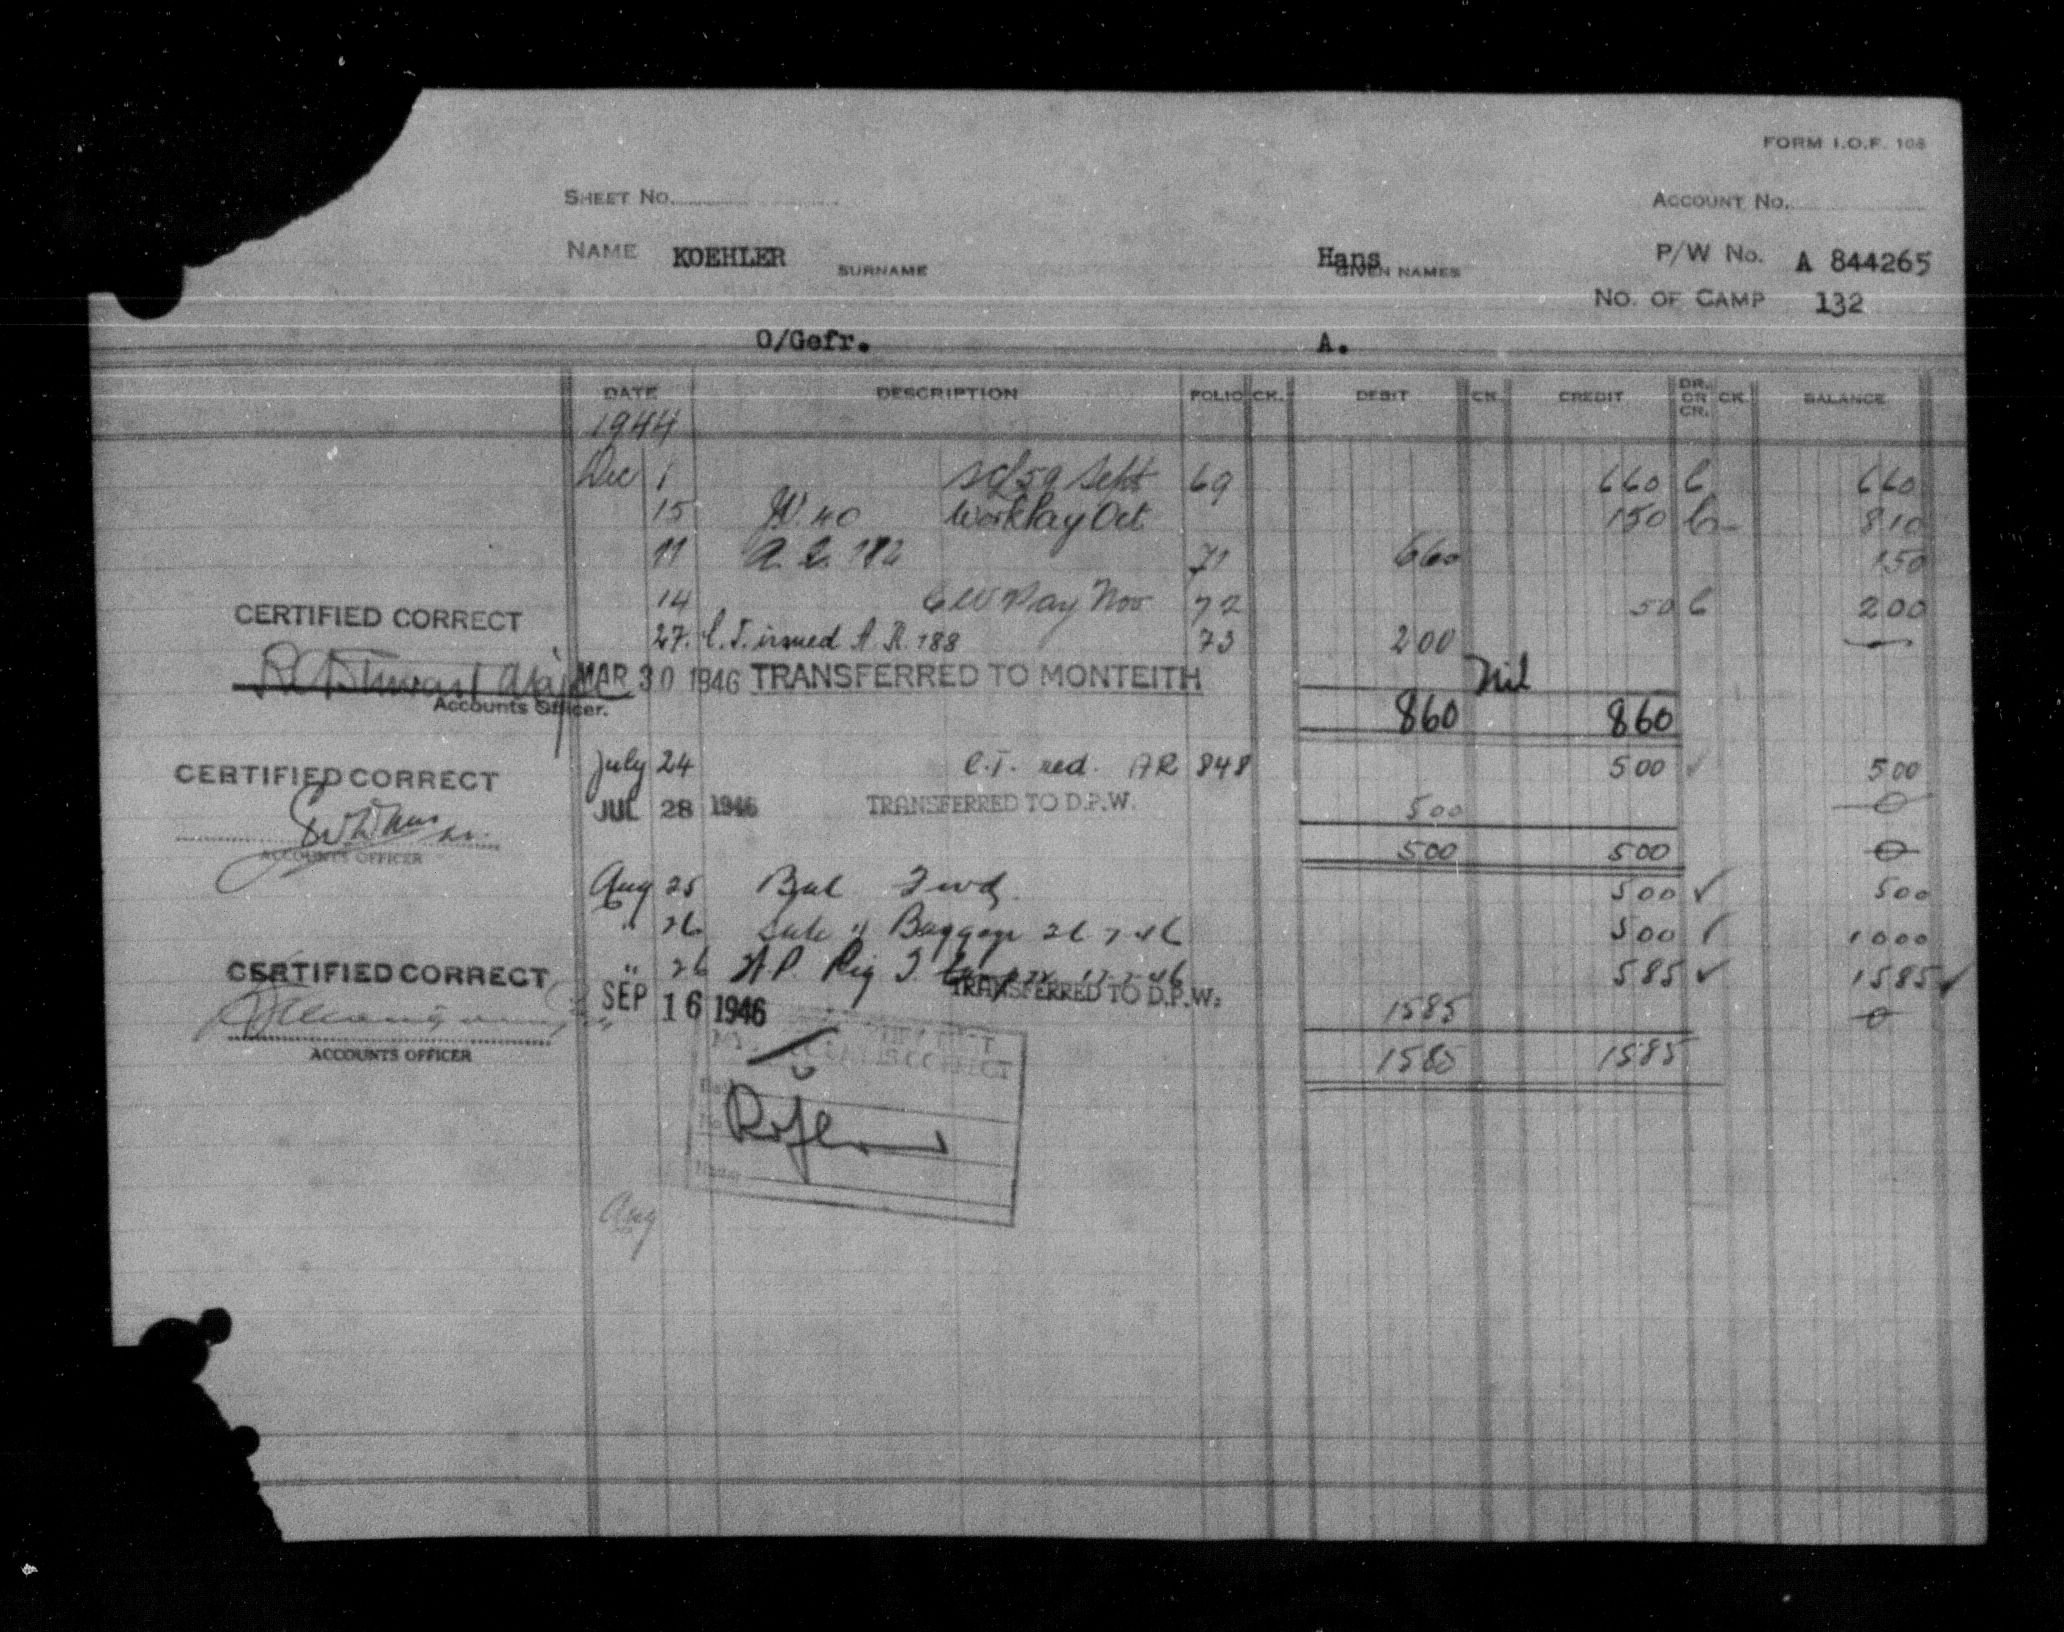 FORM I.O.F. 108
SHEET No. ACCOUNT No.
NAME KOEHLER Hans P/W No. A 844265
SURNAME GIVEN NAMES
NO. OF CAMP 132
O/Gefr. A.
DATE DESCRIPTION FOLIO CK. DEBIT CK. CREDIT DR. OR CR. CK. BALANCE
1944
Dec 1 Sept 69 660 C 660
15 W. 40 Work Pay Oct 150 810
11 182 71 660 150
14 Pay Nov 72 50 C 200
CERTIFIED CORRECT
27. C.T. issued A.R. 188 73 200 —
MAR 30 1946 TRANSFERRED TO MONTEITH Nil
Accounts Officer.
860 860
July 24 C.T. red. AR 848 500 ✓ 500
CERTIFIED CORRECT
JUL 28 1946 TRANSFERRED TO D.P.W. 500 0
ACCOUNTS OFFICER
500 500 0
Aug 25 Bal Fwd. 500 ✓ 500
" 26 Sale Baggage 26 7 46 500 1000
" 26 585 ✓ 1585 ✓
CERTIFIED CORRECT
SEP 16 1946 TRANSFERRED TO D.P.W. 1585 0
ACCOUNTS OFFICER
1585 1585
Aug